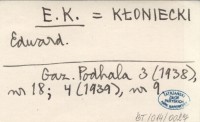 E.K. = KŁONIECKI
Edward.
Gaz. Podhala 3 (1938),
nr 18; 4 (1939), nr 9